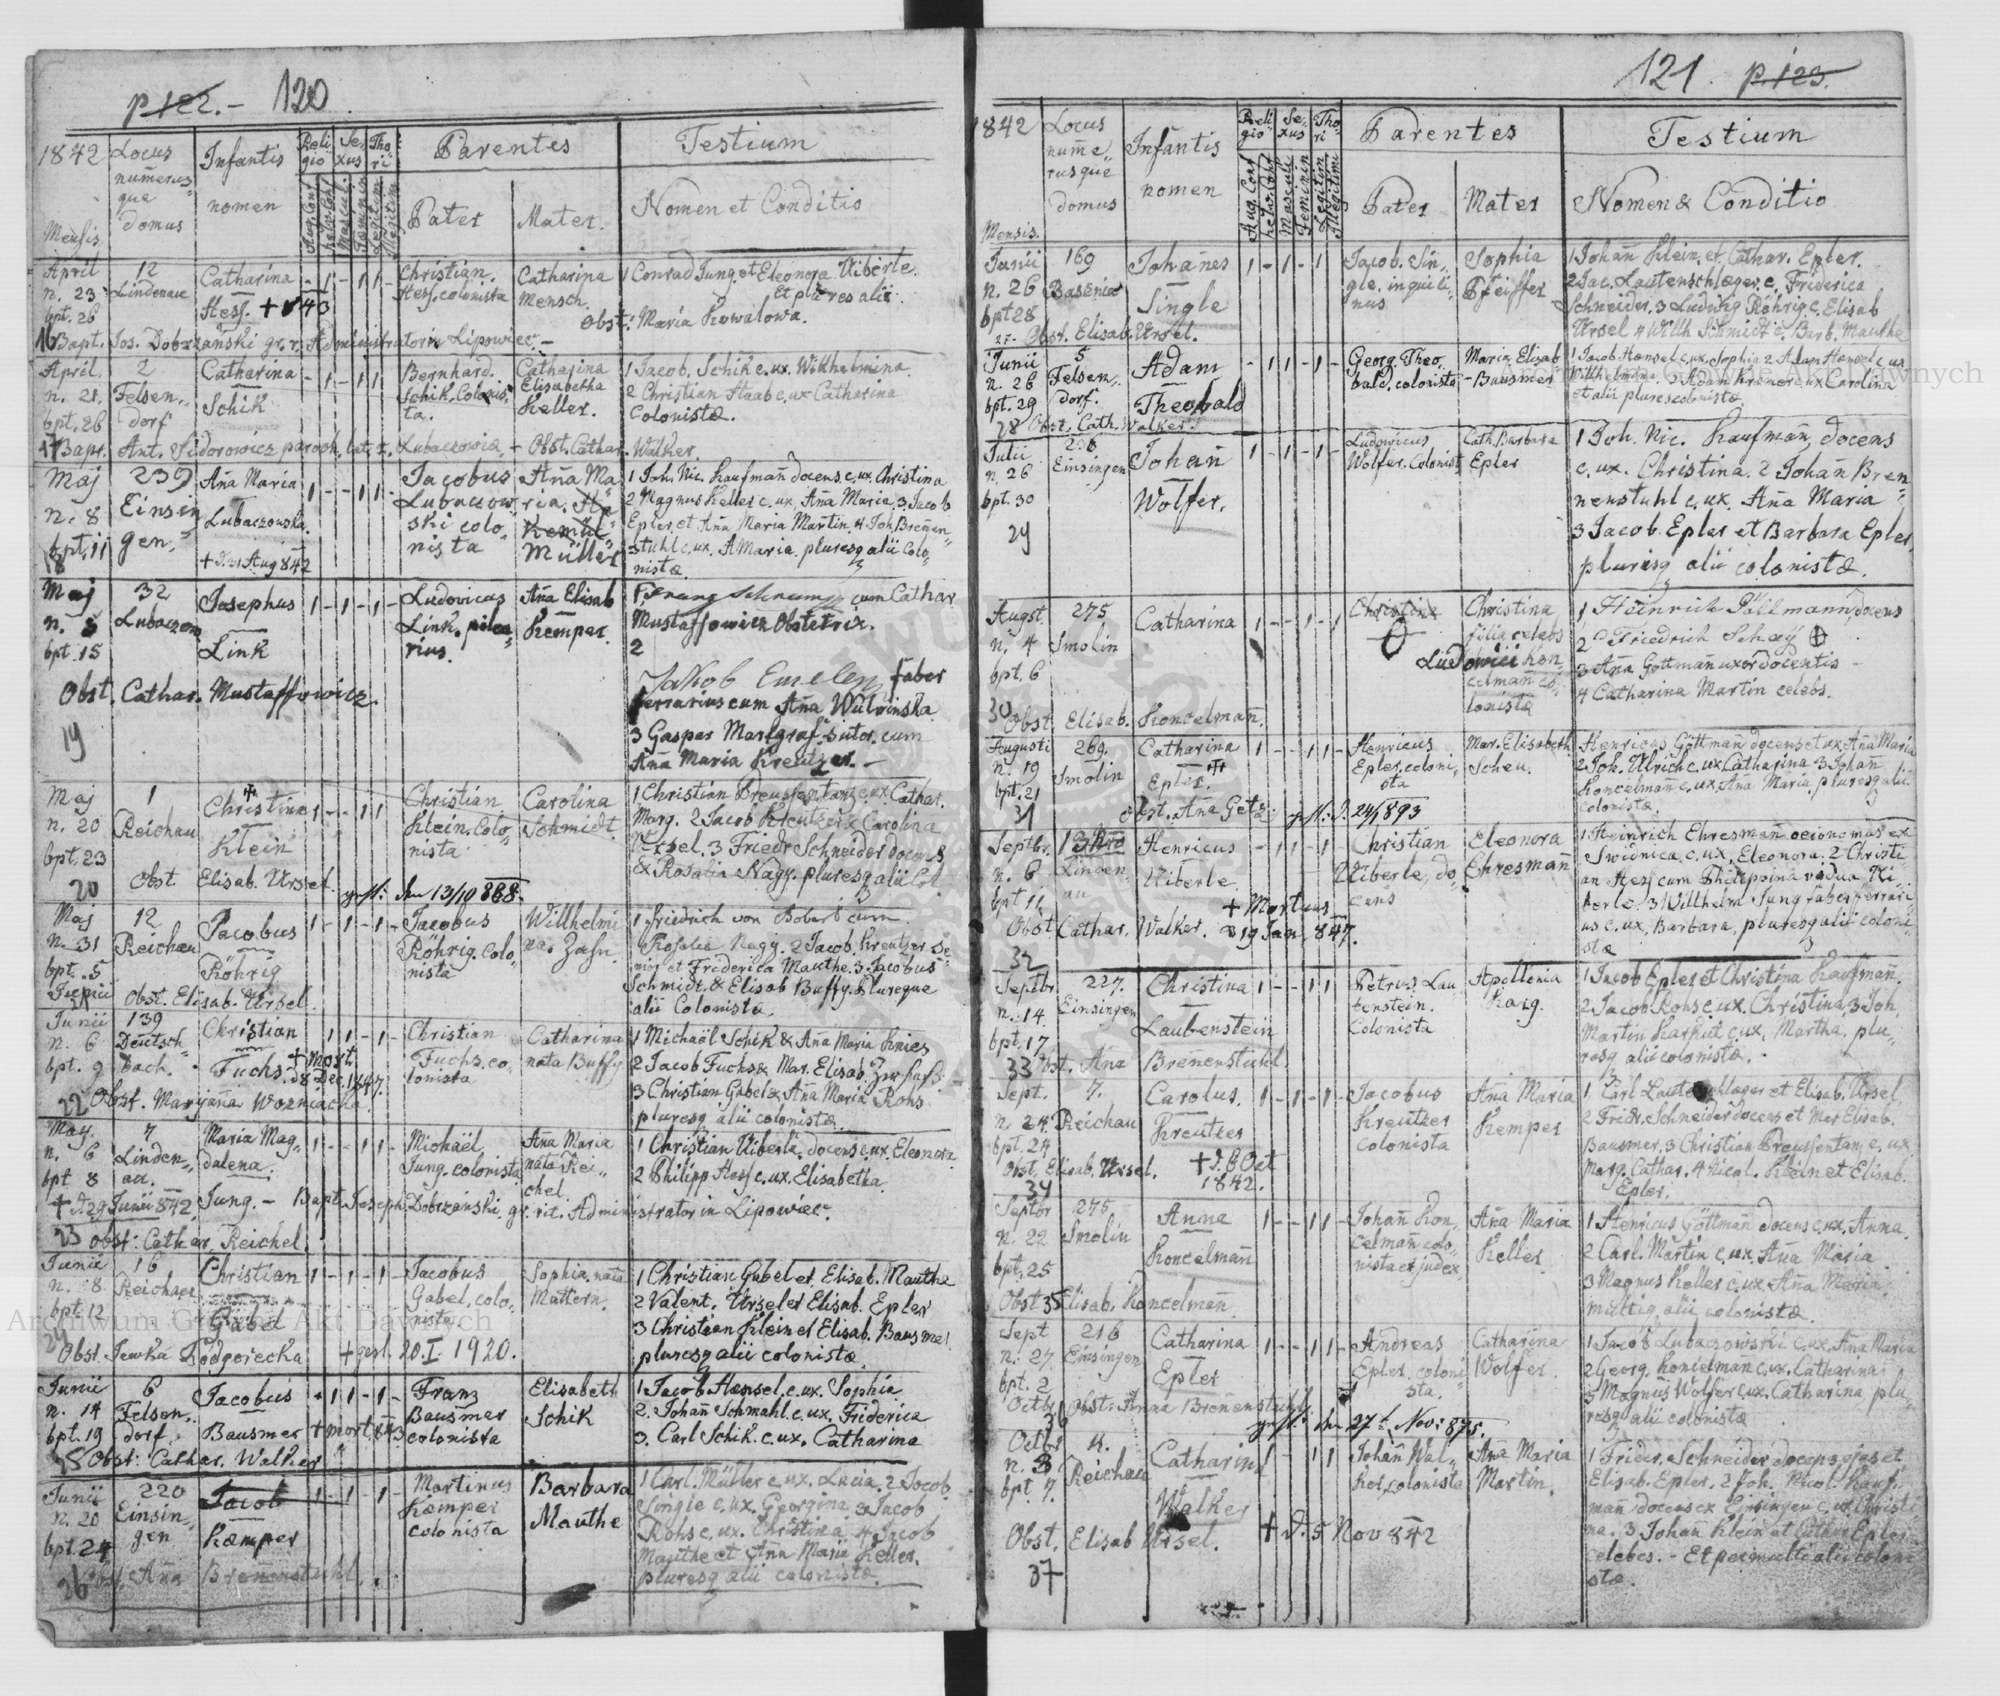 p 122. - 120
1842
Mensis
Locus numerus- que domus
Infantis nomen
Religio
Sexus
Thori
Aug. Conf
Helv. Conf
Mascul.
Feminin
Legitim
Illegitim
Parentes
Pater
Mater.
Testium
Nomen et Conditio
April 12 Catharina - 1 - 1 1 - Christian. Catharina 1 Conrad Jung et Eleonora Uiberle.
n. 23 Lindenau Hess. colonista Mensch. Et plures alii.
bpt. 26 Hess. + 843 Obst: Maria Kowalowa.
16 Bapt. Jos. Dobrzański gr. r. Administrator in Lipowiec. -
April. 2 Catharina - 1 - 1 1 Bernhard. Catharina 1 Jacob. Schik c. ux. Wilhelmina.
n. 21. Felsen- Schik. Colonis- Elisabetha 2 Christian Haab c. ux Catharina
bpt. 26 dorf Schik ta. Keller. Colonistæ.
17 Bapt. Ant. Sidorowicz paroch. lat. r. Lubaczowiæ - Obst. Cathar. Walker.
Maj 239 Aña Maria 1 - - 1 1 - Jacobus Aña Ma 1 Joh. Nic. Kaufmañ docens c. ux. Christina
n. 8 Einsin Lubaczow- ria. 2 Magnus Keller c. ux. Aña Maria. 3. Jacob
bpt. 11 gen. Lubaczowska. ski colo- Epler et Aña Maria Martin. 4 Joh. Breñen-
18 + d. 21 Aug 842 nista Müller stuhl c. ux. A Maria. pluresq alii Colo-
nistæ
Maj 32 Josephus 1 - 1 - 1 - Ludovicus Aña Elisab cum Cathar
n. 5 Lubaczow Link. pilea- Kemper. Mustaffowicz Obstetrix.
bpt. 15 Link rius. 2
Obst. Cathar. Mustaffowicz. Jakob faber
ferrarius cum Aña
19 3 Gaspar Markgraf sutor. cum
Aña Maria Kreutzer. -
Maj 1 Christina 1 - - 1 1 Christian Carolina 1 Christian Preussentanz c. ux. Cathar.
n. 20 Reichau Klein. Colo- Schmidt Marg. 2 Jacob Kreutzer & Carolina
bpt. 23 Klein nista Ursel. 3 Friedr Schneider docens
20 Obst. Elisab. Ursel. gest: den 13/10 888. & Rosalia Nagy. pluresq alii Col
Maj 12 Jacobus 1 - 1 - 1 - Jacobus Willhelmi 1 Friedrich von Bobart cum
n. 31 Reichau Röhrig. Colo- na. Zahn. Rosalia Nagy. 2 Jacob. Kreutzer Se-
bpt. 5 Röhrig nista nior et Friderica Mauthe. 3 Jacobus
Junii Schmidt. & Elisab Buffy. Pluresque
21 Obst. Elisab. Ursel. alii Colonistæ.
Junii 139 Christian 1 1 - 1 - Christian Catharina 1 Michaël Schik & Aña Maria Knies
n. 6 Deutsch- Fuchs. co- nata Buffy 2 Jacob Fuchs & Mar. Elisab
bpt. 9 bach. Fuchs. + Mort. lonista 3 Christian Gabel & Aña Maria Rohs
d 8 Dec. 1847.
22 Obst. Maryaña Wozniacka. pluresq alii colonistæ.
May 7 Maria Mag- 1 - - 1 1 - Michaël Aña Maria 1 Christian Uiberle. docens c. ux. Eleonora.
n. 6 Linden- dalena. Jung. colonista nata Rei- 2 Philipp Hess c. ux. Elisabetha.
bpt 8 au. chel.
+ d 29 Junii 842. Jung. - Bapt. Joseph Dobrzański. gr. rit. Administrator in Lipowiec.
23 Obst: Cathar. Reichel.
Junii 16 Christian 1 - 1 - 1 - Jacobus Sophia. nata 1 Christian Gabel et. Elisab. Mauthe
n. 8 Reichau Gabel. colo- Mattern. 2 Valent. Ursel et Elisab. Epler
bpt. 12 Gabel nista 3 Christian Klein et Elisab. Bausmer.
24 Obst. Jewka Podporecka + gest. 20. I. 1920. pluresq alii colonistæ
Junii 6 Jacobus - 1 1 - 1 - Franz Elisabeth 1 Jacob Hænsel. c. ux. Sophia
n. 14 Felsen- Bausmer Schik 2. Johañ Schmahl. c. ux. Friderica
bpt. 19 dorf. Bausmer + mort. 843 colonista 3. Carl Schik. c. ux. Catharina
25 Obst: Cathar. Walker
Junii 220 Jacob 1 - 1 - 1 - Martinus Barbara 1 Carl. Müller c. ux. Lucia. 2 Jacob.
n. 20 Einsin- Kæmper Mauthe Single c. ux. Georgina. 3 Jacob
bpt. 24 gen Kæmper colonista Rohs c. ux. Christina. 4 Jacob
Mauthe et Aña Maria Keller.
26 Obst. Aña Breñenstuhl. pluresq alii colonistæ.
121. p. 123.
1842
Mensis.
Locus nume- rusque domus
Infantis nomen
Religio
Sexus
Thori
Aug. Conf
Helv. Conf
Masculi
Feminin
Legitim
Illegitimi
Parentes
Pater
Mater
Testium
Nomen & Conditio
Junii 169 Johañes 1 - 1 - 1 Jacob. Sin- Sophia 1 Johañ Klein. et. Cathar. Epler.
n. 26 Basznia gle. inquili- Pfeiffer 2 Jac. Lautenschlæger. c. Friderica
bpt 28 Single nus Schneider. 3 Ludwig Röhrig. c. Elisab
27. Obst. Elisab. Ursel. Ursel 4 Willh Schmidt c. Barb. Mauthe
Junii 5 Adam - 1 1 - 1 - Georg Theo- Maria Elisab 1 Jacob Hænsel c. ux. Sophia 2 Adam Hænsel c ux
n. 26 Felsen- bald. colonista - Bausmer Willhelmina. 3 Adam Kramer c. ux Carolina
bpt. 29 dorf. Theobald et alii plures colonistæ
28 Obst. Cath. Walker.
Julii 236 Johañ 1 - 1 - 1 - Ludovicus Cath. Barbara 1 Joh. Nic. Kaufmañ, docens
n. 26 Einsingen Wolfer. Colonist Epler c. ux. Christina. 2 Johañ Bren-
bpt. 30 Wolfer. nenstuhl c. ux. Aña Maria
29 3 Jacob Epler et Barbara Epler,
pluresq alii colonistæ.
Augst. 275 Catharina 1 - - 1 - 1 Christina Christina 1 Heinrich Göllmann, docens
n. 4 Smolin filia celebs 2 Friedrich
bpt. 6 Ludovici Kon- 3 Aña Göttmañ uxor docentis -
celmañ co- 4 Catharina Martin celebs.
30 Obst Elisab. Koncelmañ. lonistæ
Augusti 269. Catharina 1 - - 1 1 - Henricus Mar. Elisabeth Henricus Göttmañ docens et ux. Aña Maria
n. 19 Smolin Epler. Epler, coloni- Scheu. 2 Joh. Ulrich c. ux Catharina 3 Johañ
bpt. 21 sta Koncelmañ c. ux. Aña Maria pluresq alii
31 obst. Aña Getz. 24/1 893 colonistæ.
Septbr. Henricus - 1 1 - 1 - Christian Eleonora 1 Heinrich Ehresmañ oeconomus ex
n. 6 Linden- Uiberle, do- Ehresmañ Swidnica. c. ux. Eleonora. 2 Christi
bpt 11 au Uiberle. cens an Hess cum Philippina vidua Ui-
+ Mortuus berle. 3 Willhelm Jung faber ferrari
Obst Cathar. Walker. d 19 Jan. 847. us c. ux. Barbara, pluresq alii coloni-
32 stæ
Septbr. 227. Christina 1 - - 1 1 Petrus. Lau- Apollonia 1 Jacob Epler et Christina Kaufmañ.
n. 14 Einsingen benstein. Karg. 2 Jacob Rohs c. ux. Christina, 3 Joh.
bpt. 17 Laubenstein Colonista Martin c. ux. Martha. plu-
33 Obst. Aña Breñenstuhl. resq alii colonistæ.
Sept. 7. Carolus. 1 - 1 - 1 - Jacobus Aña Maria 1 Carl Lautenschlager et Elisab. Ursel,
n. 24. Reichau Kreutzer Kemper 2 Fridr. Schneider docens et Mar Elisab.
bpt. 24 Kreutzer colonista Bausmer. 3 Christian Preussentanz c. ux
Obst. Elisab. Ursel. + d. 6 Oct 1842. Marg. Cathar. 4 Nicol. Klein et Elisab.
34 Epler.
Septbr 275 Anna 1 - - 1 1 - Johañ Kon- Aña Maria 1 Henricus Göttmañ docens c. ux. Anna.
n. 22 Smolin celmañ colo- Keller 2 Carl. Martin c. ux. Aña Maria
bpt. 25 Koncelmañ nista et judex 3 Magnus Keller c. ux. Aña Maria
Obst 35 Elisab. Koncelmañ. multiq alii colonistæ
Sept 216 Catharina 1 - - 1 1 - Andreas Catharina 1 Jacob Lubaczowski c. ux. Aña Maria
n. 27. Einsingen Epler coloni- Wolfer. 2 Georg. Koncelman c. ux. Catharina
bpt. 2 Epler sta. 3 Magnus Wolfer c. ux. Catharina plu-
Octbr. Obst: Anna Breñenstuhl. resq alii colonistæ
36 gest: den 27t Nov: 875.
Octbr 4. Catharina 1 - - 1 1 Johañ Wal- Aña Maria 1 Frider. Schneider docens ejus et
n. 3 Reichau ker, colonista Martin. Elisab. Epler. 2 Joh. Nicol. Kauf-
bpt. 7. Walker mañ docens ex Einsingen c. ux. Christi
Obst. Elisab Ursel. + d. 5 Nov 842 na. 3 Johañ Klein et Cathar Epler
37 celebes. - Et permulti alii coloni
stæ.
Archiwum Główne Akt Dawnych
Archiwum Główne Akt Dawnych